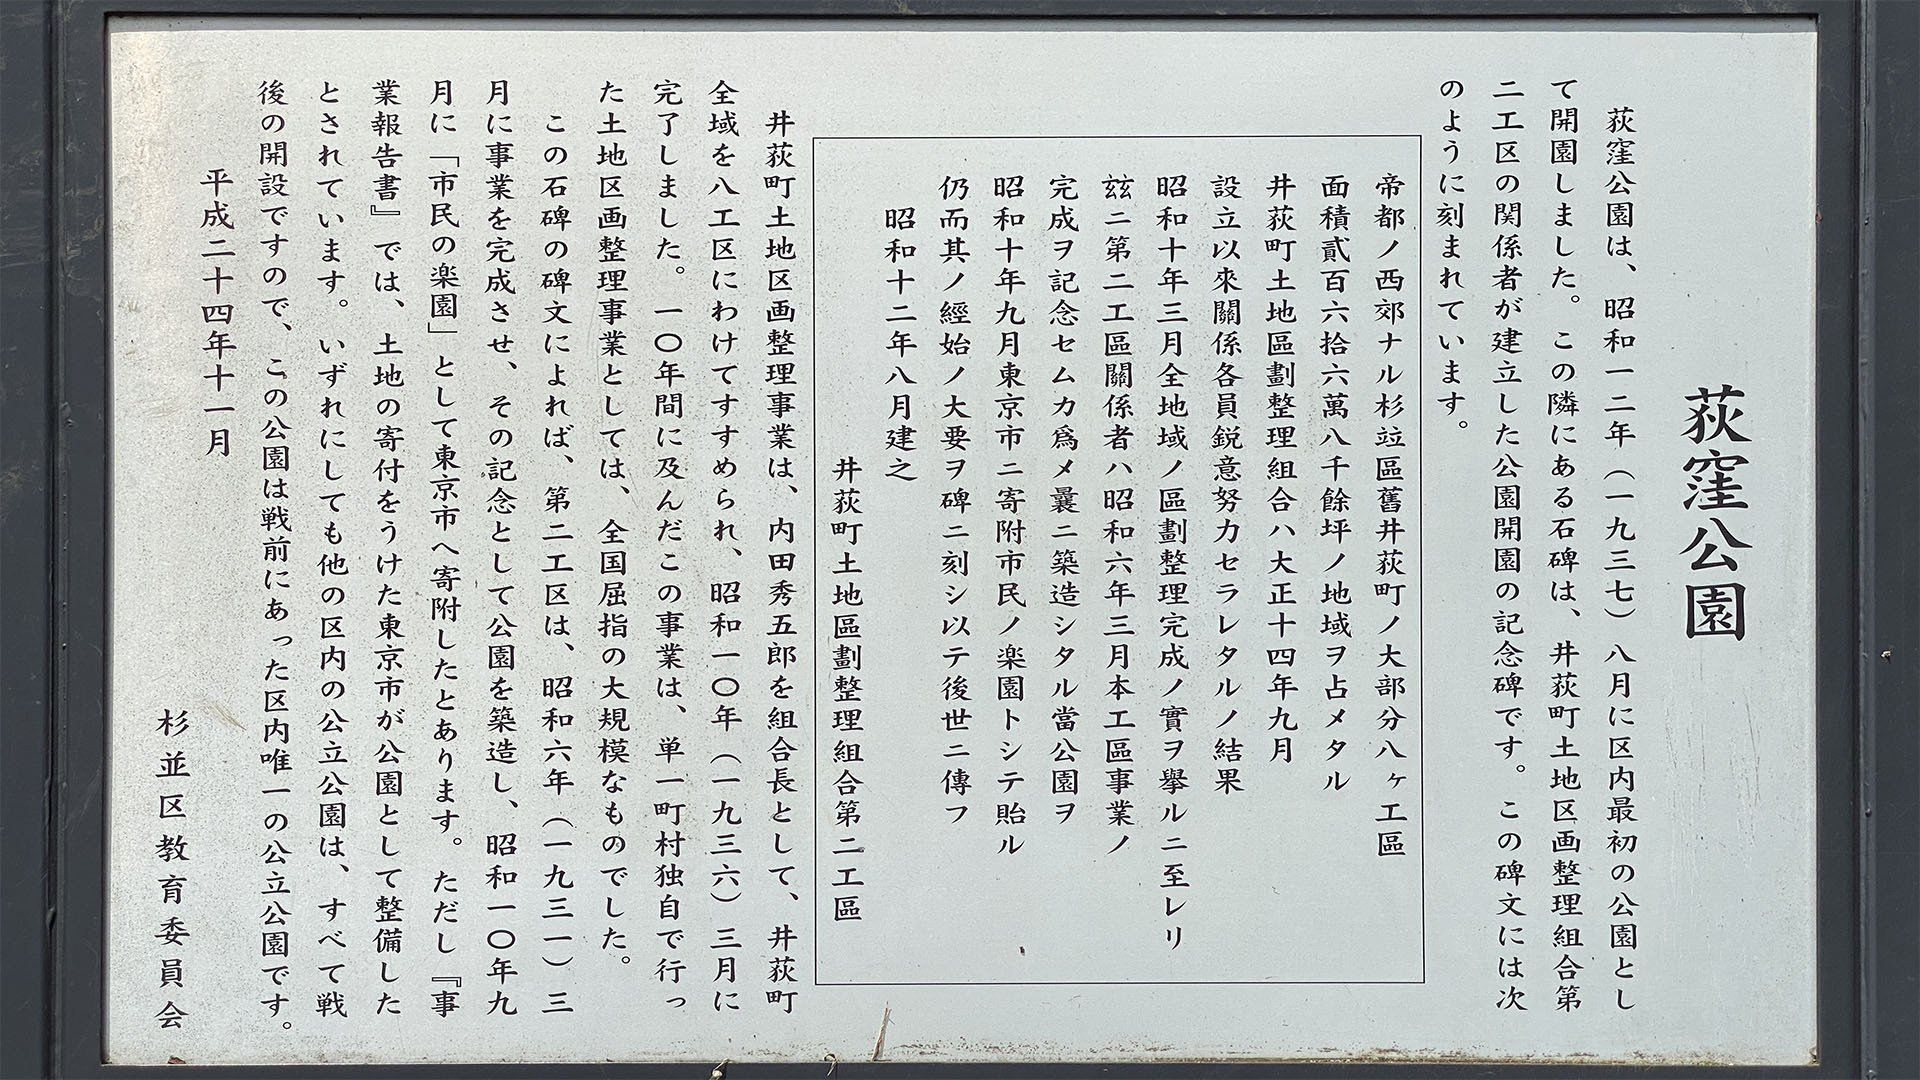 荻窪公園
荻窪公園は、昭和一二年（一九三七）八月に区内最初の公園とし
て開園しました。この隣にある石碑は、井荻町土地区画整理組合第
二工区の関係者が建立した公園開園の記念碑です。この碑文には次
のように刻まれています。
帝都ノ西郊ナル杉竝區舊井荻町ノ大部分八ヶ工區
面積貳百六拾六萬八千餘坪ノ地域ヲ占メタル
井荻町土地區劃整理組合ハ大正十四年九月
設立以來關係各員鋭意努力セラレタルノ結果
昭和十年三月全地域ノ區劃整理完成ノ實ヲ擧ルニ至レリ
玆ニ第二工區關係者ハ昭和六年三月本工區事業ノ
完成ヲ記念セムカ爲メ曩ニ築造シタル當公園ヲ
昭和十年九月東京市ニ寄附市民ノ楽園トシテ貽ル
仍而其ノ經始ノ大要ヲ碑ニ刻シ以テ後世ニ傳フ
昭和十二年八月建之
井荻町土地區劃整理組合第二工區
井荻町土地区画整理事業は、内田秀五郎を組合長として、井荻町
全域を八工区にわけてすすめられ、昭和一〇年（一九三六）三月に
完了しました。一〇年間に及んだこの事業は、単一町村独自で行っ
た土地区画整理事業としては、全国屈指の大規模なものでした。
この石碑の碑文によれば、第二工区は、昭和六年（一九三一）三
月に事業を完成させ、その記念として公園を築造し、昭和一〇年九
月に「市民の楽園」として東京市へ寄附したとあります。ただし『事
業報告書』では、土地の寄付をうけた東京市が公園として整備した
とされています。いずれにしても他の区内の公立公園は、すべて戦
後の開設ですので、この公園は戦前にあった区内唯一の公立公園です。
平成二十四年十一月
杉並区教育委員会